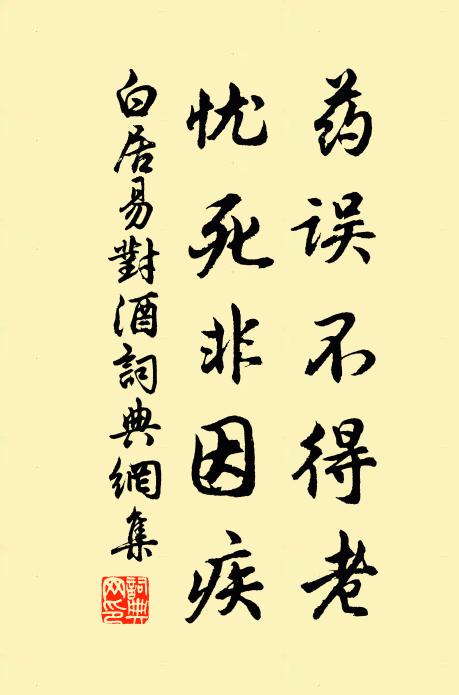 药误不得老
忧死非因疾
白居易對酒詞典網集
詞典网印